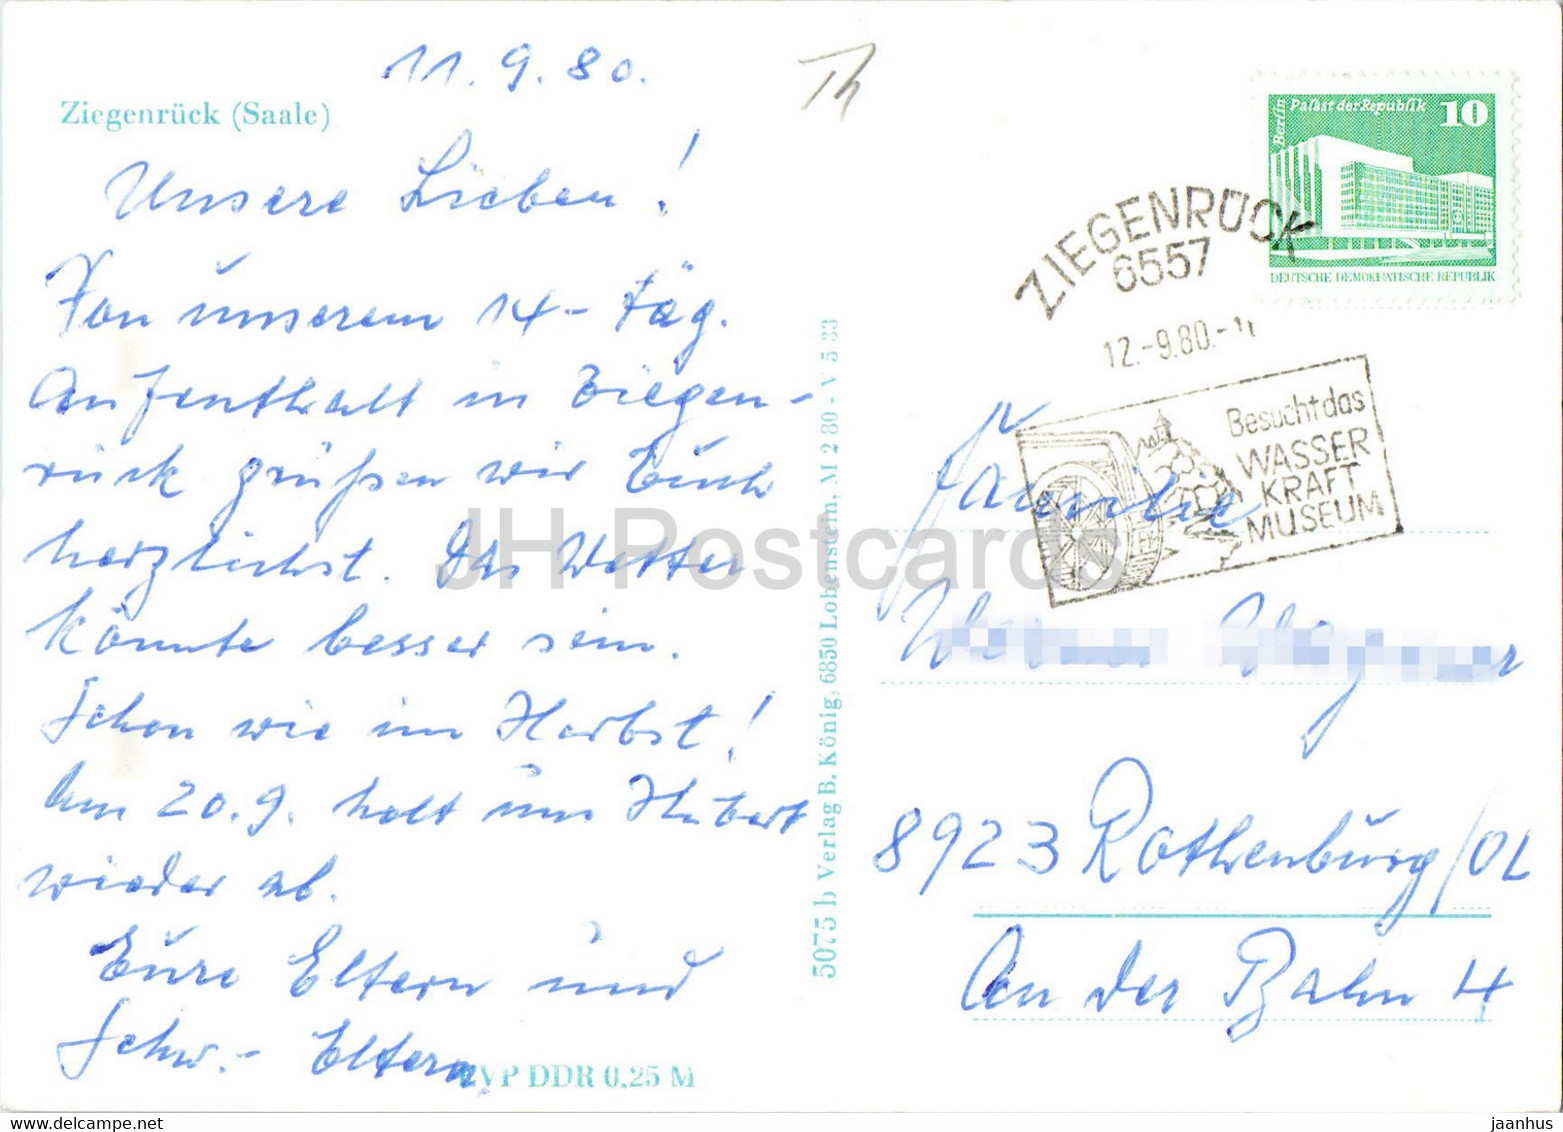 11.9.80.
Ziegenrück (Saale)
Unsere Lieben!
Von unserem 14-täg.
Aufenthalt in Ziegen-
rück grüßen wir Euch
herzlichst. Das Wetter
könnte besser sein.
Schon wie im Herbst!
Am 20.9. holt uns Hubert
wieder ab.
Eure Eltern und
Schw.- Eltern
EVP DDR 0,25 M
5075 b Verlag B. König, 6850 Lobenstein, M 2 80 - V 5 33
Th
Berlin Palast der Republik 10
DEUTSCHE DEMOKRATISCHE REPUBLIK
ZIEGENRÜCK
6557
12.-9.80.-
Besucht das
WASSER
KRAFT
MUSEUM
Familie
8923 Rothenburg/OL
An der Bahn 4
JH Postcards
www.delcampe.net
jaanhus